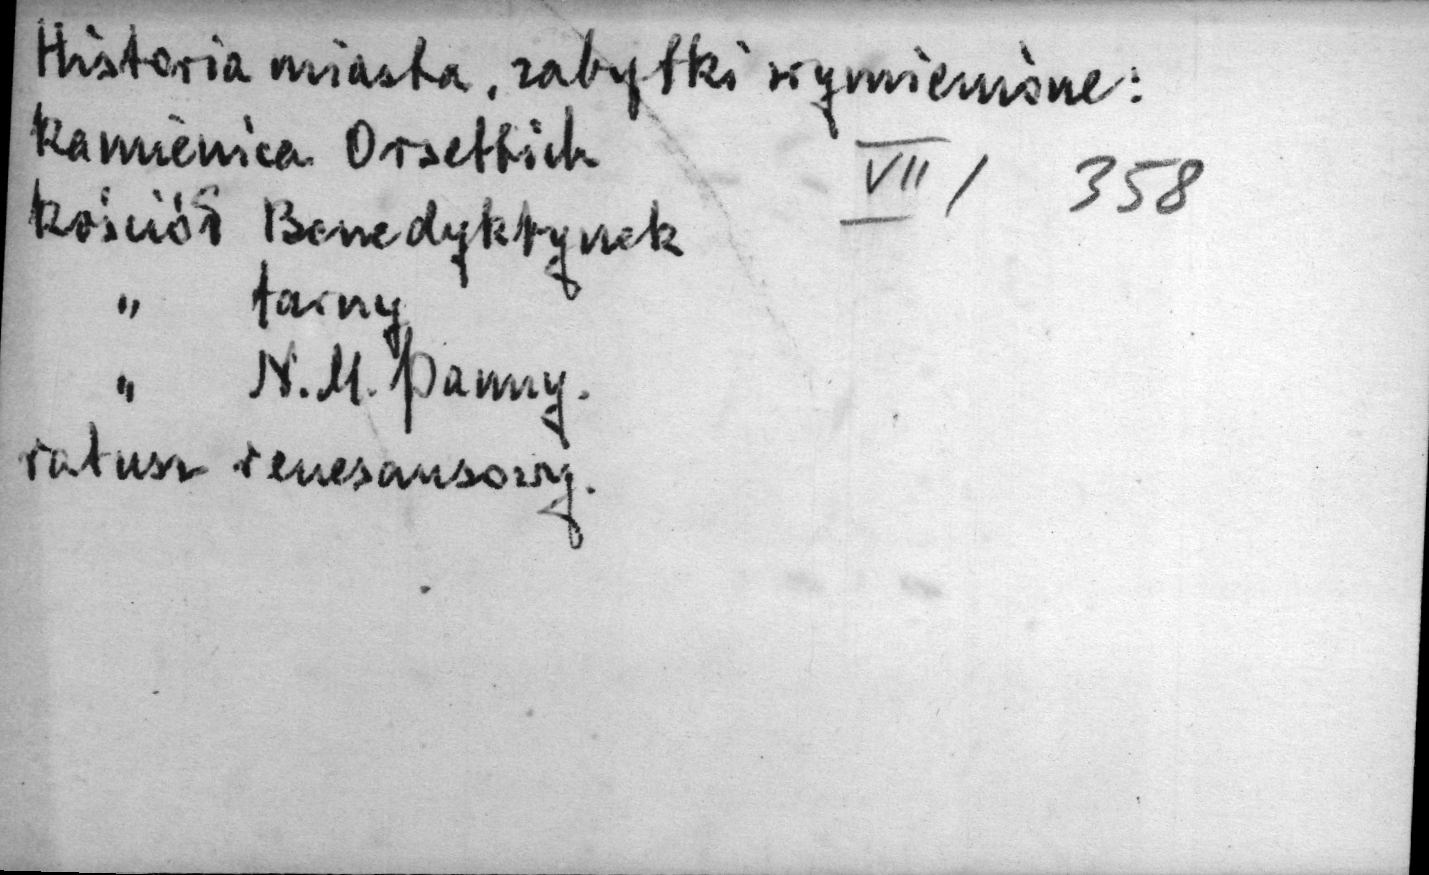 Historia miasta, zabytki wymienione:
Kamienica Orsettich
VII / 358
Kościół Benedyktynek
" farny
" N. M. Panny.
ratusz renesansowy.